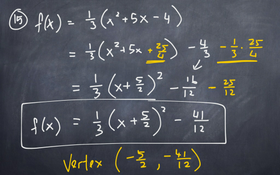 (15) f(x) = 1/3 (x² + 5x - 4)
= 1/3 (x² + 5x + 25/4) - 4/3 - 1/3 · 25/4
= 1/3 (x + 5/2)² - 16/12 - 25/12
f(x) = 1/3 (x + 5/2)² - 41/12
Vertex (-5/2, -41/12)